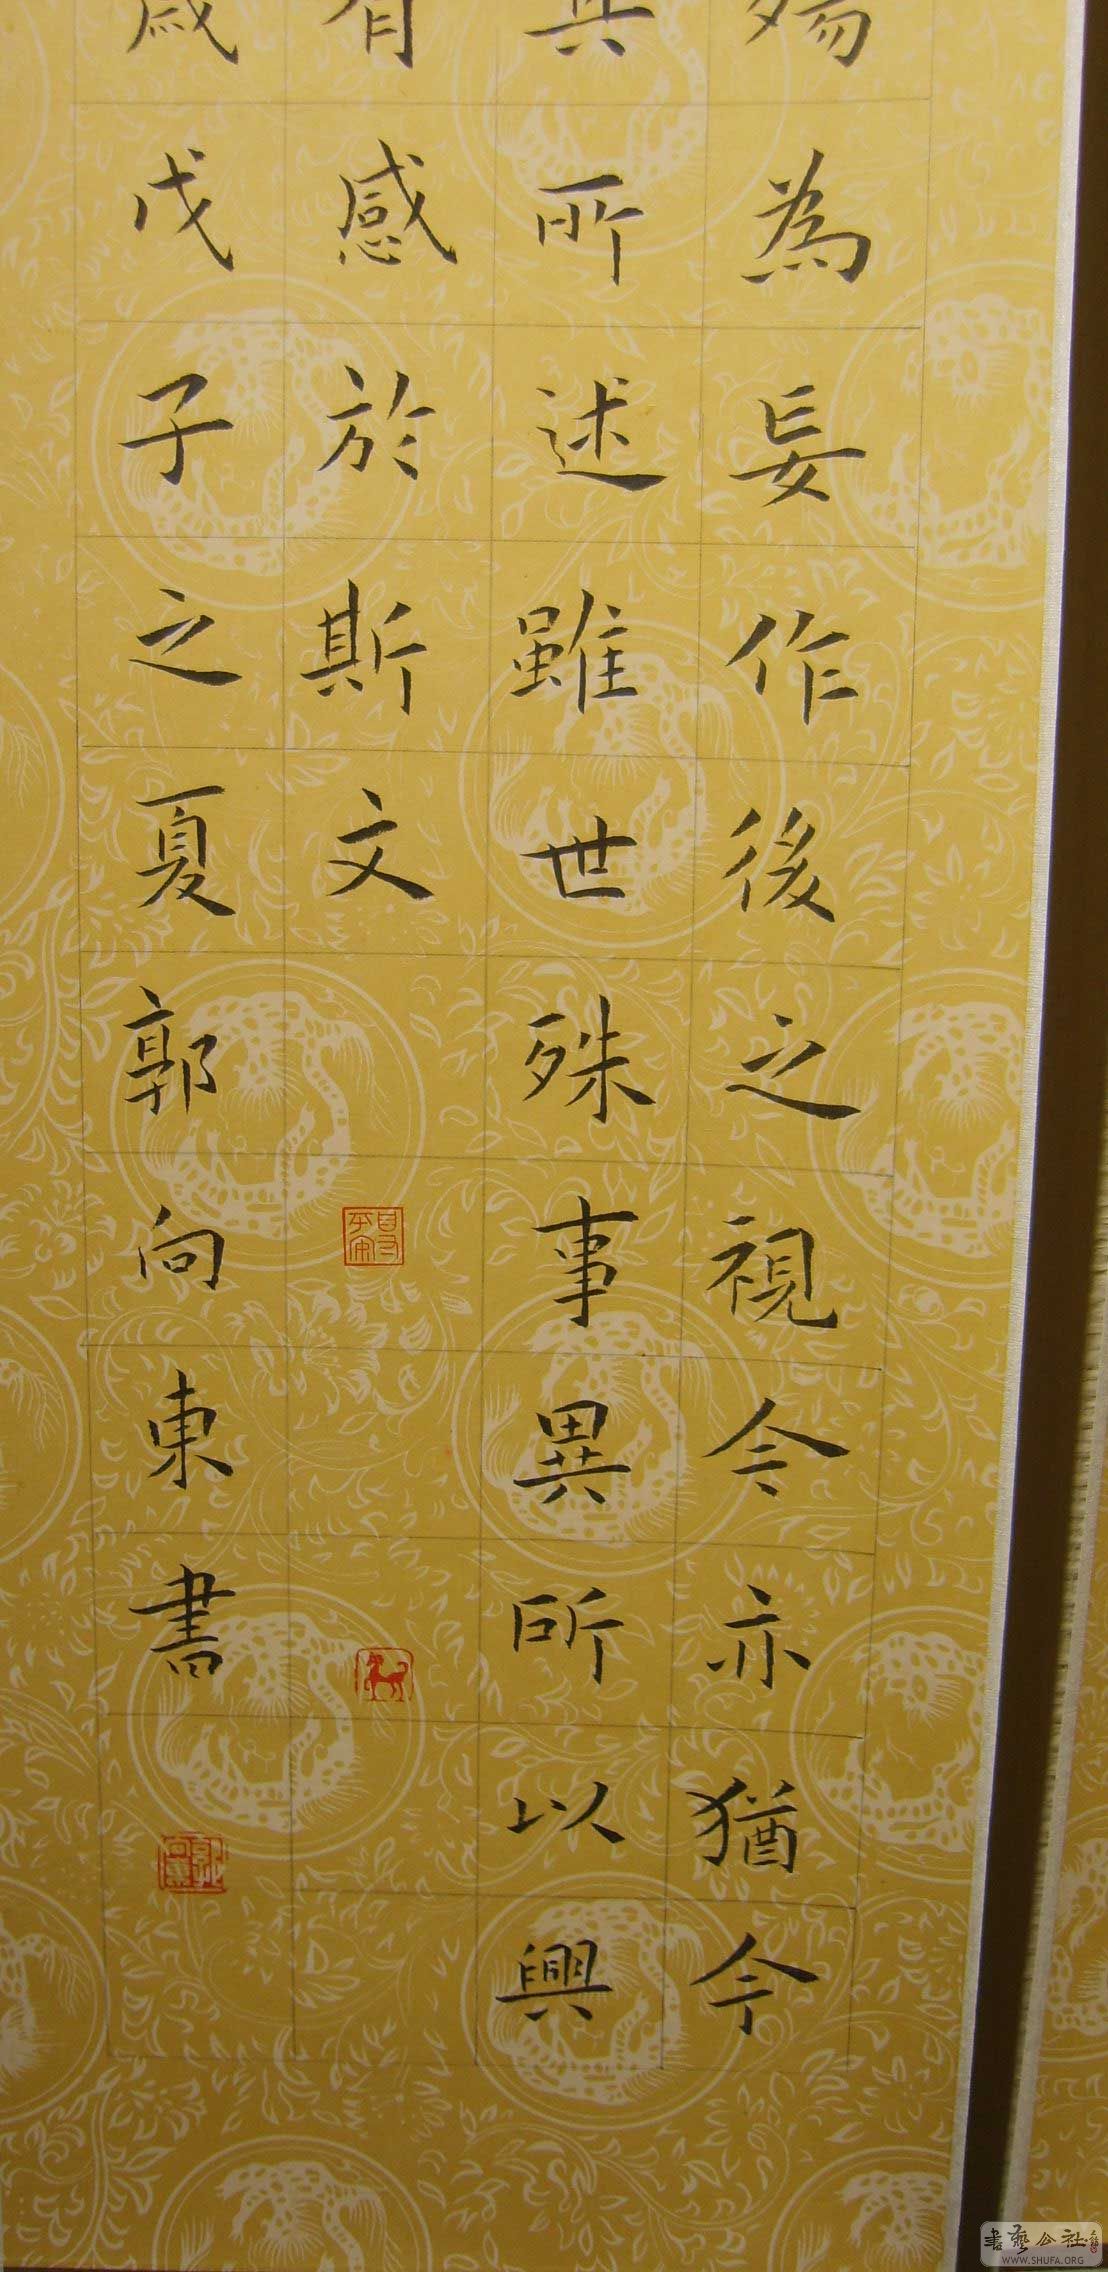 殤為妄作後之視今亦猶今
其所述雖世殊事異所以興
有感於斯文
歲戊子之夏郭向東書
書藝公社
WWW.SHUFA.ORG